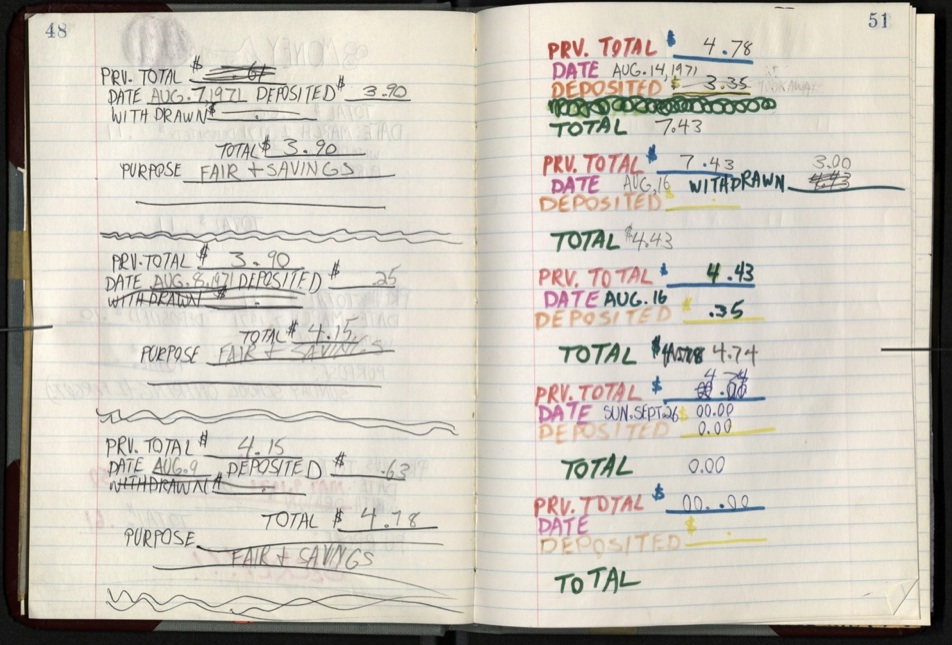 48
PRV. TOTAL $ .61
DATE AUG. 7, 1971 DEPOSITED $ 3.90
WITHDRAWN $ .
TOTAL $ 3.90
PURPOSE FAIR + SAVINGS
PRV. TOTAL $ 3.90
DATE AUG. 8, 1971 DEPOSITED $ .25
WITHDRAWN $ .
TOTAL $ 4.15
PURPOSE FAIR + SAVINGS
PRV. TOTAL $ 4.15
DATE AUG. 9 DEPOSITED $ .63
WITHDRAWN $ .
TOTAL $ 4.78
PURPOSE
FAIR + SAVINGS
51
PRV. TOTAL $ 4.78
DATE AUG. 14, 1971
DEPOSITED $ 3.35
TOTAL 7.43
PRV. TOTAL $ 7.43 3.00
DATE AUG, 16 WITHDRAWN 4.43
DEPOSITED $ .
TOTAL $4.43
PRV. TOTAL $ 4.43
DATE AUG. 16
DEPOSITED $ .35
TOTAL $ 4.74
4.74
PRV. TOTAL $ 00.00
DATE SUN. SEPT. 26 $ 00.00
DEPOSITED 0.00
TOTAL 0.00
PRV. TOTAL $ 00..00
DATE $
DEPOSITED .
TOTAL